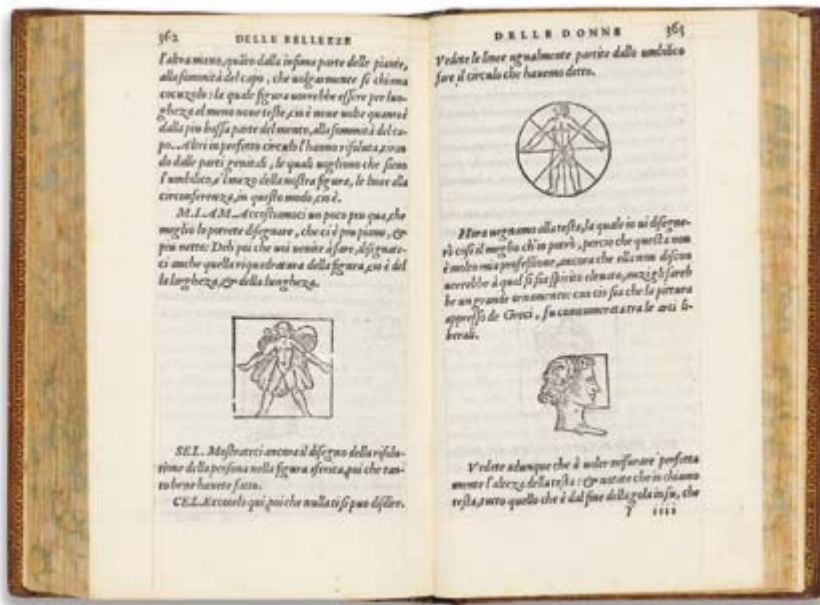 362 DELLE BELLEZZE
l'altra mano, quãto dalla infima parte delle piante,
alla sommità del capo, che uolgarmente si chiama
cocuzolo: la quale figura uorrebbe essere per lun-
gheza al meno noue teste, ciò è noue uolte quanto è
dalla piu bassa parte del mento, alla sommità del ca-
po. Altri in perfetto circulo l'hanno risoluta, tiran
do dalle parti genitali, le quali uogliono che sieno
l'umbilico, e'l mezo della nostra figura, le linee alla
circonferenza, in questo modo, ciò è.
M. LAM. Accostiamoci un poco piu qua, che
meglio lo potrete disegnare, che ci è piu piano, & è
piu netto: Deh poi che uoi uenite à fare, disegnate-
ci anche quella riquadratura della figura, ciò è del
la largheza, & della lungheza.
SEL. Mostrateci ancora il disegno della risolu-
tione della persona nella figura sferica, poi che tan-
to bene hauete fatto.
CEL. Eccoelo qui, poi che nulla ti si puo disdire.
DELLE DONNE 363
Vedete le linee ugualmente partite dallo umbilico
fare il circulo che hauemo detto.
Hora uegnamo alla testa, la quale io ui disegne-
rò cosi il meglio ch'io potrò, percio che questa non
è molto mia professione, ancora che ella non discon
uerrebbe à qual si sia spirito eleuato, anzi gli sareb
be un grande ornamento: con cio sia che la pittura
appresso de Greci, fu connumerata tra le arti li-
berali.
Vedete adunque che à uoler misurare perfetta
mente l'alteza della testa: & notate che io chiamo
testa, tutto quello che è dal fine della gola in su, che
Y iiii